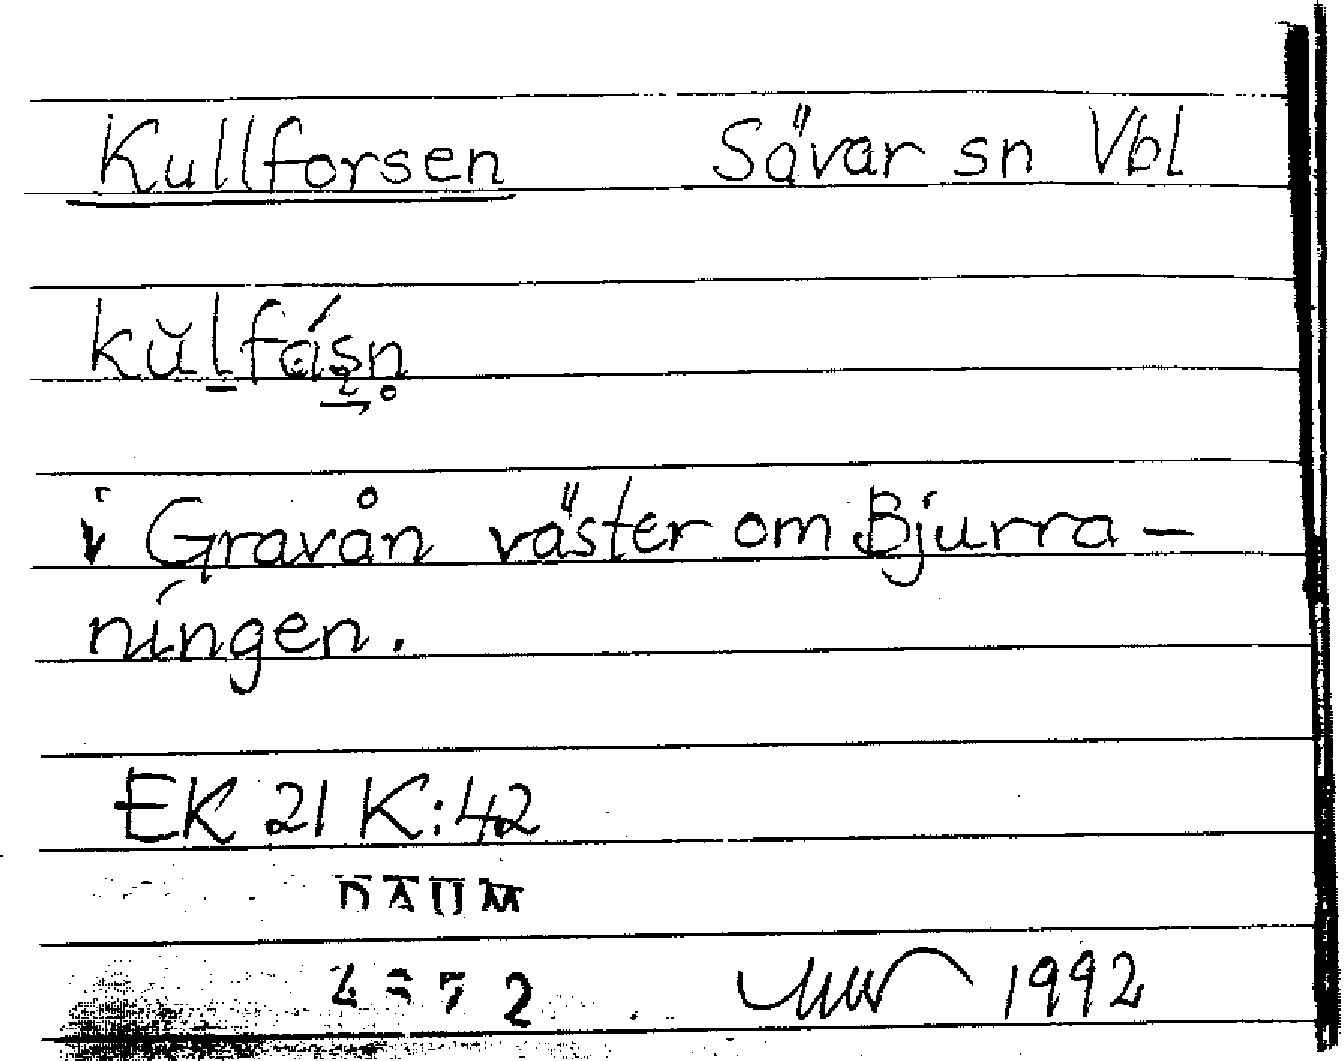 Kullforsen Sävar sn Vbl
kŭlfásn
i Gravån väster om Bjurra-
ningen.
EK 21 K:42
DAUM
1992